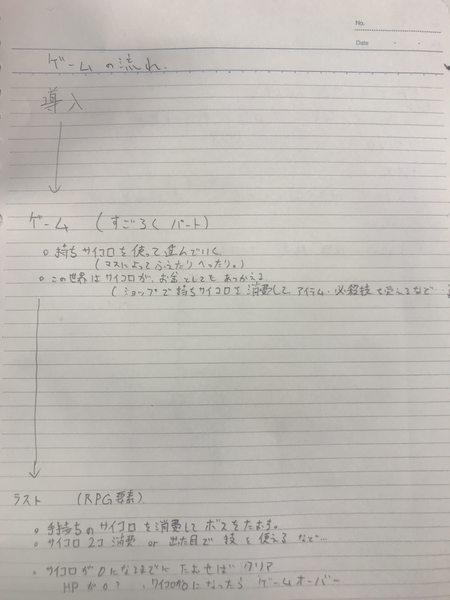 No.
Date
ゲームの流れ
導入
ゲーム (すごろくパート)
○ 持ちサイコロを使って進んでいく
(マスによってふえたりへったり。)
○ この世界はサイコロが、お金としてもあつかえる
(ショップで持ちサイコロを消費してアイテム・必殺技を買えるなど…
ラスト (RPG要素)
○ 手持ちのサイコロを消費してボスをたおす。
○ サイコロ2コ消費 or 出た目で技を使えるなど…
・サイコロが0になるまでにたおせばクリア
HPが0? サイコロが0になったらゲームオーバー